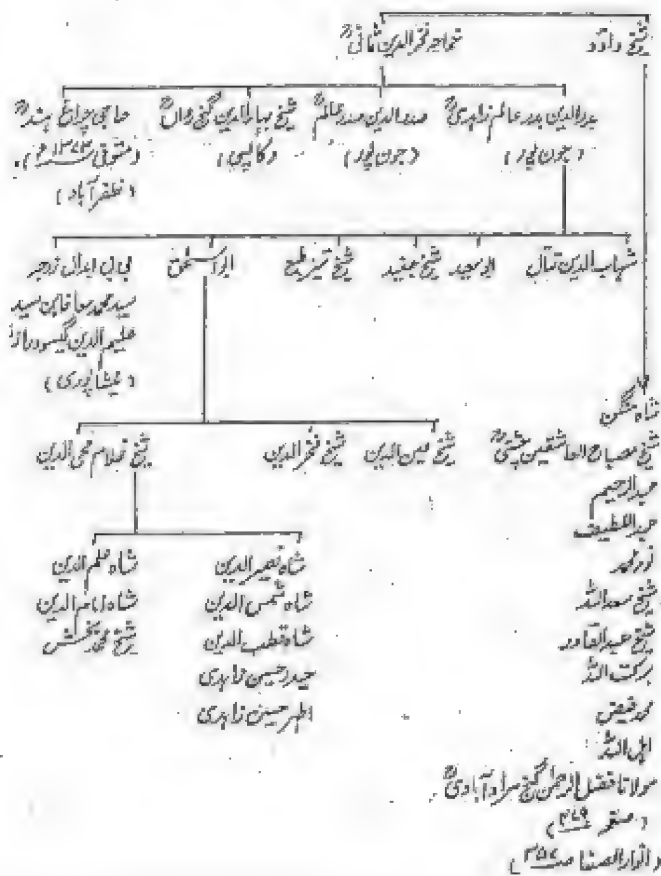 شیخ داؤد
خواجہ فخر الدین ثانیؒ
بدر الدین بدر عالم زاہدیؒ
(جون پور)
صدر الدین صدر عالمؒ
(جون پور)
شیخ بہاء الدین گنج رواںؒ
(کالپی)
حاجی چراغ ہندؒ
(متوفی ۱۳۷۳ء)
(ظفر آباد)
شہاب الدین قتال
ابو سعید
شیخ جنید
شیخ
ابو اسحٰق
بی بی ابدال زوجہ
سید محمد بن سید
علیم الدین گیسو دراز
(نیشاپوری)
شیخ معین الدین
شیخ فخر الدین
شیخ غلام محی الدین
شاہ نصیر الدین
شاہ شمس الدین
شاہ قطب الدین
حیدر حسین زاہدی
اطہر حسین زاہدی
شاہ علم الدین
شاہ امام الدین
شیخ محمد بخش
شاہ منگن
شیخ مصباح العاشقین چشتیؒ
عبد الرحیم
عبد اللطیف
نور محمد
شیخ سعد اللہ
شیخ عبد القادر
برکت اللہ
محمد فیض
اہل اللہ
مولانا فضل الرحمٰن گنج مراد آبادیؒ
(صفحہ ۳۶۹)
(انوار الصفا صـ ۳۵۷)